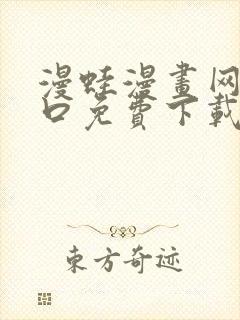 漫蛙漫畫网
口免費下載
东方奇迹